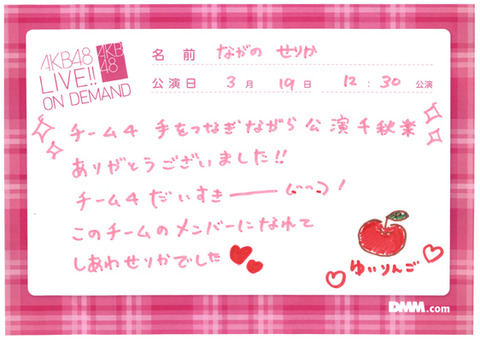 AKB48
LIVE!!
ON DEMAND
AKB
48
名前 ながの せりか
公演日 3月 19日 12:30 公演
チーム4 手をつなぎながら公演千秋楽
ありがとうございました!!
チーム4 だいすきーーー !
このチームのメンバーになれて
しあわせりかでした
ゆいりんご
DMM.com